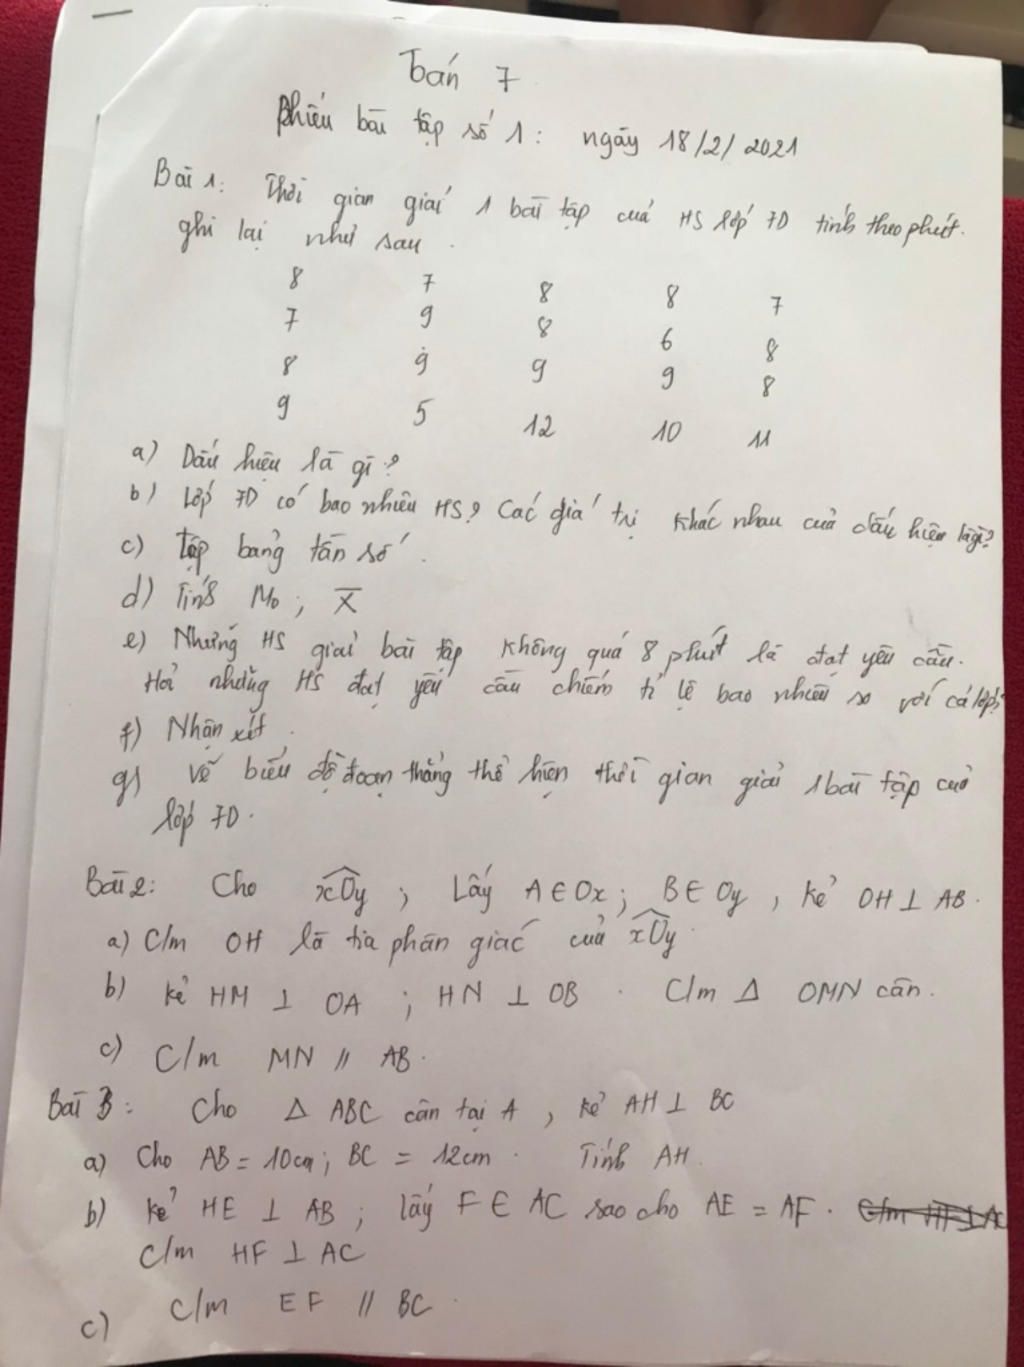 Toán 7
Phiếu bài tập số 1: ngày 18/2/2021
Bài 1: Thời gian giải 1 bài tập của HS lớp 7D tính theo phút.
ghi lại như sau.
8 7 8 8 7
7 9 8 6 8
8 9 9 9 8
9 5 12 10 11
a) Dấu hiệu là gì?
b) Lớp 7D có bao nhiêu HS? Các giá trị khác nhau của dấu hiệu là gì?
c) Lập bảng tần số.
d) Tính M₀; X̅
e) Những HS giải bài tập không quá 8 phút là đạt yêu cầu.
Hỏi những HS đạt yêu cầu chiếm tỉ lệ bao nhiêu so với cả lớp?
f) Nhận xét.
g) Vẽ biểu đồ đoạn thẳng thể hiện thời gian giải 1 bài tập của
lớp 7D.
Bài 2: Cho x̂Oy; Lấy A ∈ Ox; B ∈ Oy, kẻ OH ⊥ AB.
a) C/m OH là tia phân giác của x̂Oy.
b) kẻ HM ⊥ OA; HN ⊥ OB. C/m Δ OMN cân.
c) C/m MN // AB.
Bài 3: Cho Δ ABC cân tại A, kẻ AH ⊥ BC
a) Cho AB = 10cm; BC = 12cm. Tính AH.
b) kẻ HE ⊥ AB; lấy F ∈ AC sao cho AE = AF. C/m HF ⊥ AC
C/m HF ⊥ AC
c) C/m EF // BC.